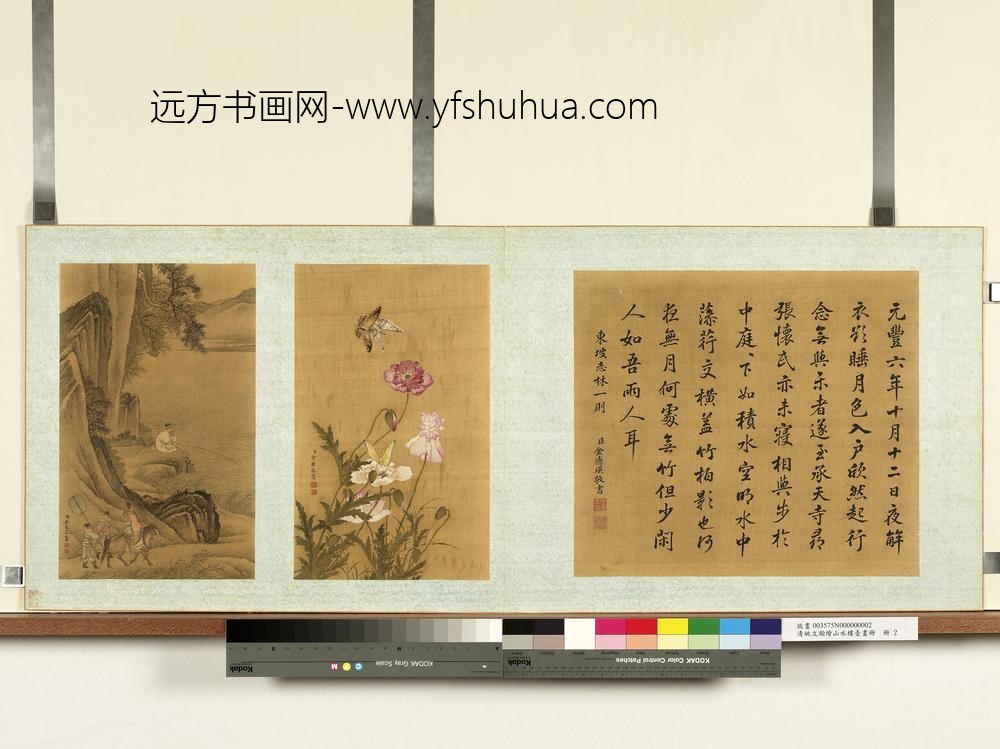 远方书画网-www.yfshuhua.com
元豐六年十月十二日夜解
衣欲睡月色入戶欣然起行
念無與樂者遂至承天寺尋
張懷民亦未寢相與步於
中庭〻下如積水空明水中
藻荇交橫蓋竹柏影也何
夜無月何處無竹柏但少閑
人如吾兩人耳
東坡志林一則
臣金德瑛敬書
故畫 003575N000000002
清姚文瀚繪山水樓臺畫冊 冊:2
Kodak
KODAK Gray Scale
C Y M
KODAK Color Control Patches
Kodak